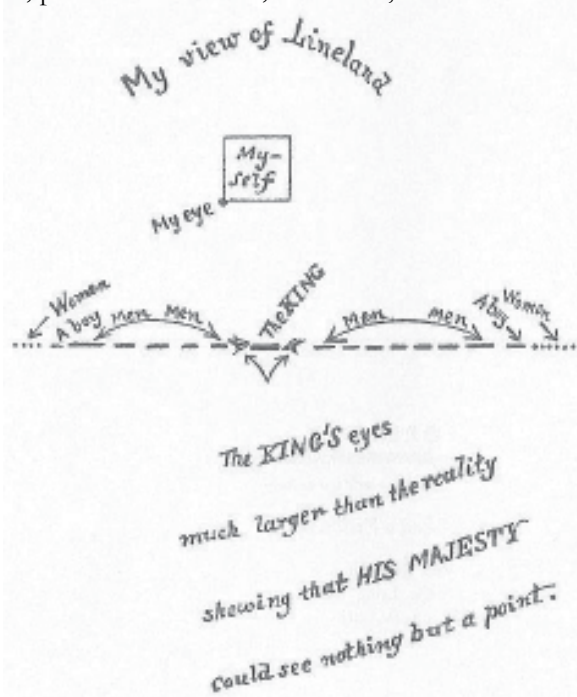 My view of Lineland
My-
self
My eye
The KING
Women
A boy
men
men
men
men
A boy
Women
The KING'S eyes
much larger than the reality
shewing that HIS MAJESTY
could see nothing but a point.